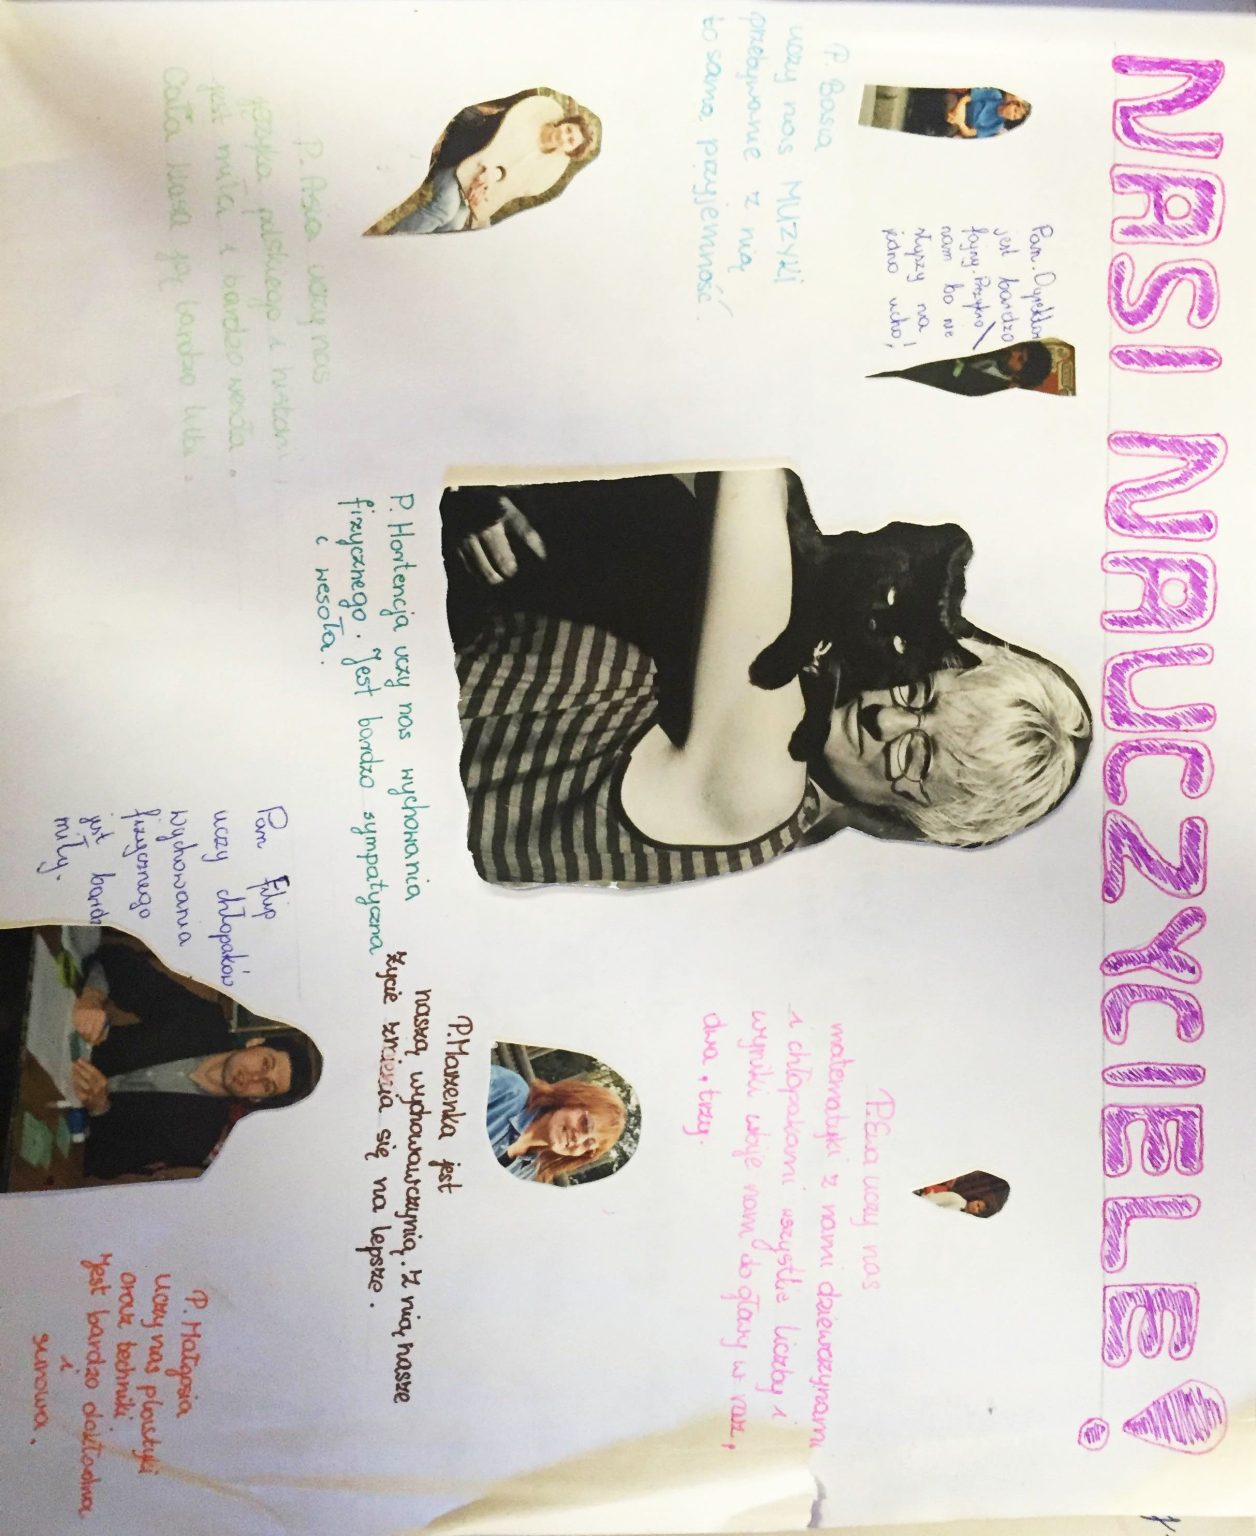 NASI NAUCZYCIELE!
P. Basia
uczy nas MUZYKI
przebywanie z nią
to sama przyjemność.
Pan. Dyrektor
jest bardzo
fajny. Przykro
nam bo nie
słyszy na
jedno ucho!
P. Ewa uczy nas
matematyki z nami dziewczynami
i chłopakami wszystkie liczby i
wyniki wbije nam do głowy w raz,
dwa, trzy.
P. Asia uczy nas
języka polskiego i historii,
jest miła i bardzo wesoła.
Cała klasa ją bardzo lubi.
P. Hortencja uczy nas wychowania
fizycznego. Jest bardzo sympatyczna
i wesoła.
P. Marzenka jest
naszą wychowawczynią. Z nią nasze
życie zmienia się na lepsze.
Pan Filip
uczy chłopaków
wychowania
fizycznego
jest bardz
miły.
P. Małgosia
uczy nas plastyki
oraz techniki.
Jest bardzo dokładna
i
surowa.